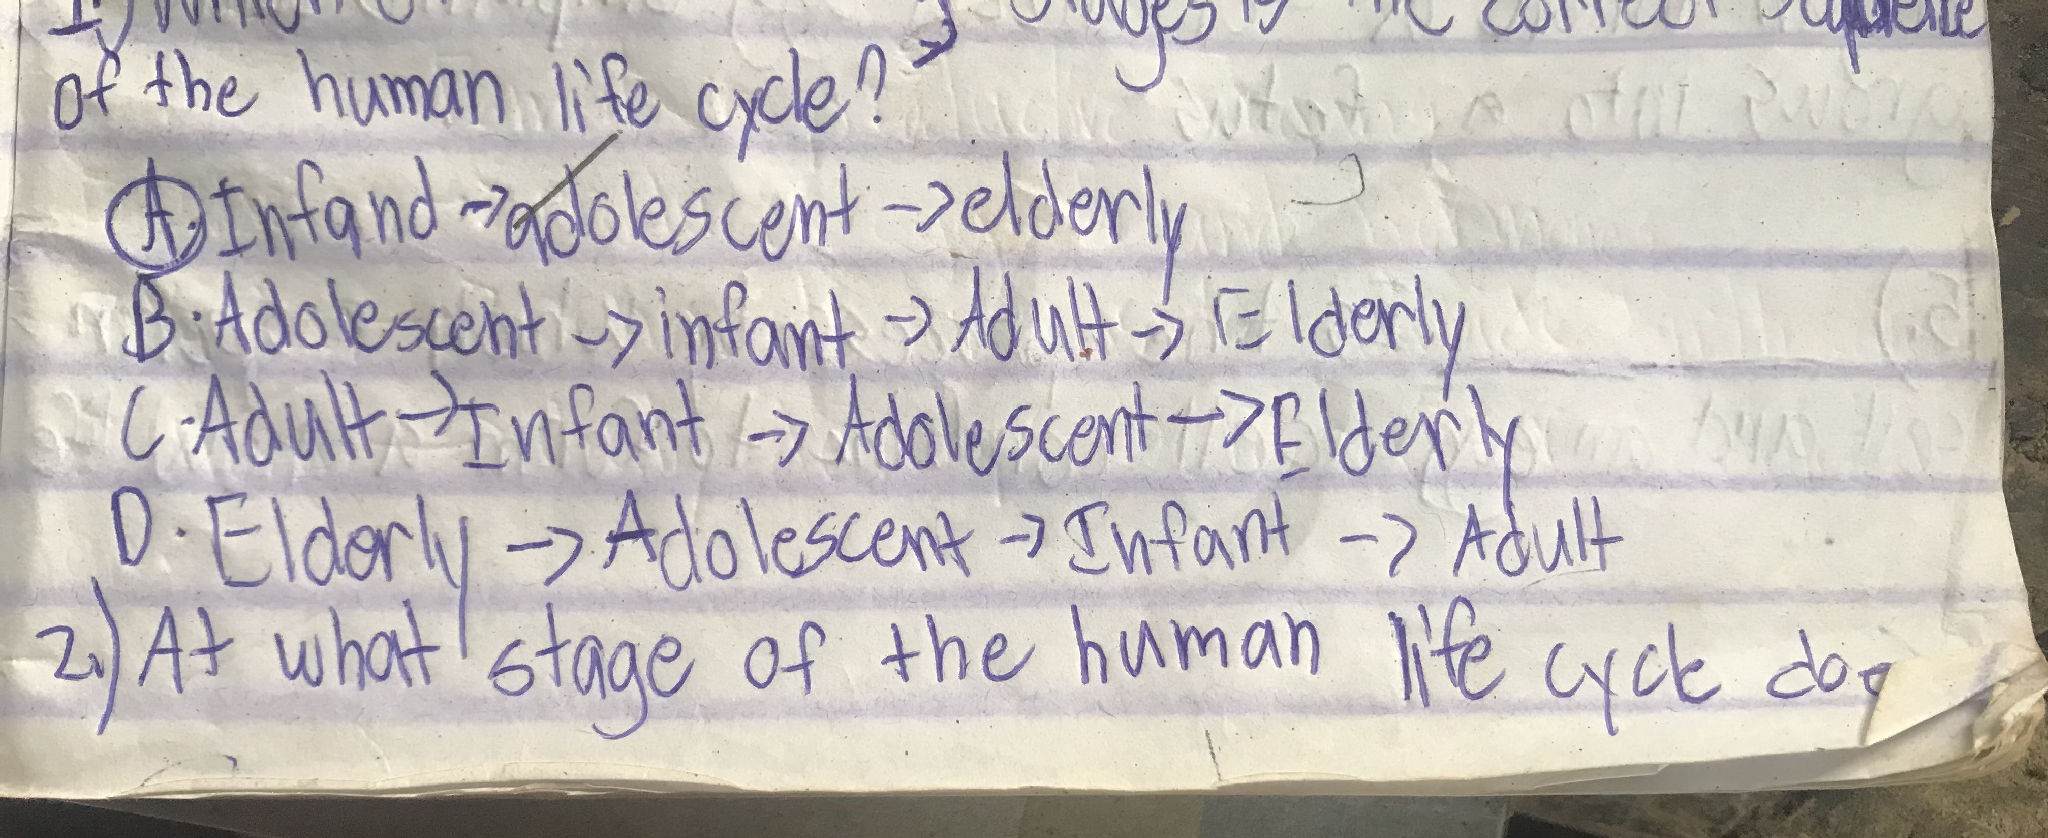 1.) Which stages is the correct
of the human life cycle?
A. Infand → adolescent → elderly
B. Adolescent → infant → Adult → Elderly
C. Adult → Infant → Adolescent → Elderly
D. Elderly → Adolescent → Infant → Adult
2.) At what stage of the human life cycle